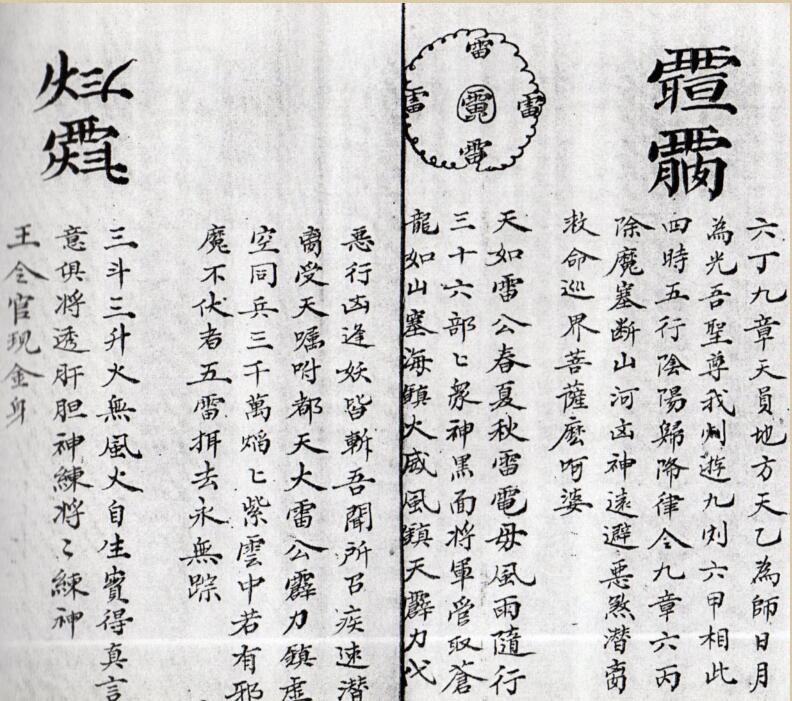 六丁九章天員地方天乙為師日月
為光吾聖尊我州遊九州六甲相此
四時五行陰陽歸降律令九章六丙
除魔塞断山河凶神遠避悪煞潜
救命巡界菩薩麽呵婆
雷
雷
雷
雷
天如雷公春夏秋雷電毋風雨隨行
三十六部〻衆神黒面将軍管取蒼
龍如山塞海鎮火威風鎮天霹力
悪行凶逢妖皆斬吾聞所召疾速潜
受天嘱咐都天大雷公霹力鎮虚
空同兵三千萬焰〻紫雲中若有邪
魔不伏者五雷去永無踪
三斗三升火無風火自生賓得真言
意俱将透肝胆神練将〻練神
王令官现金身